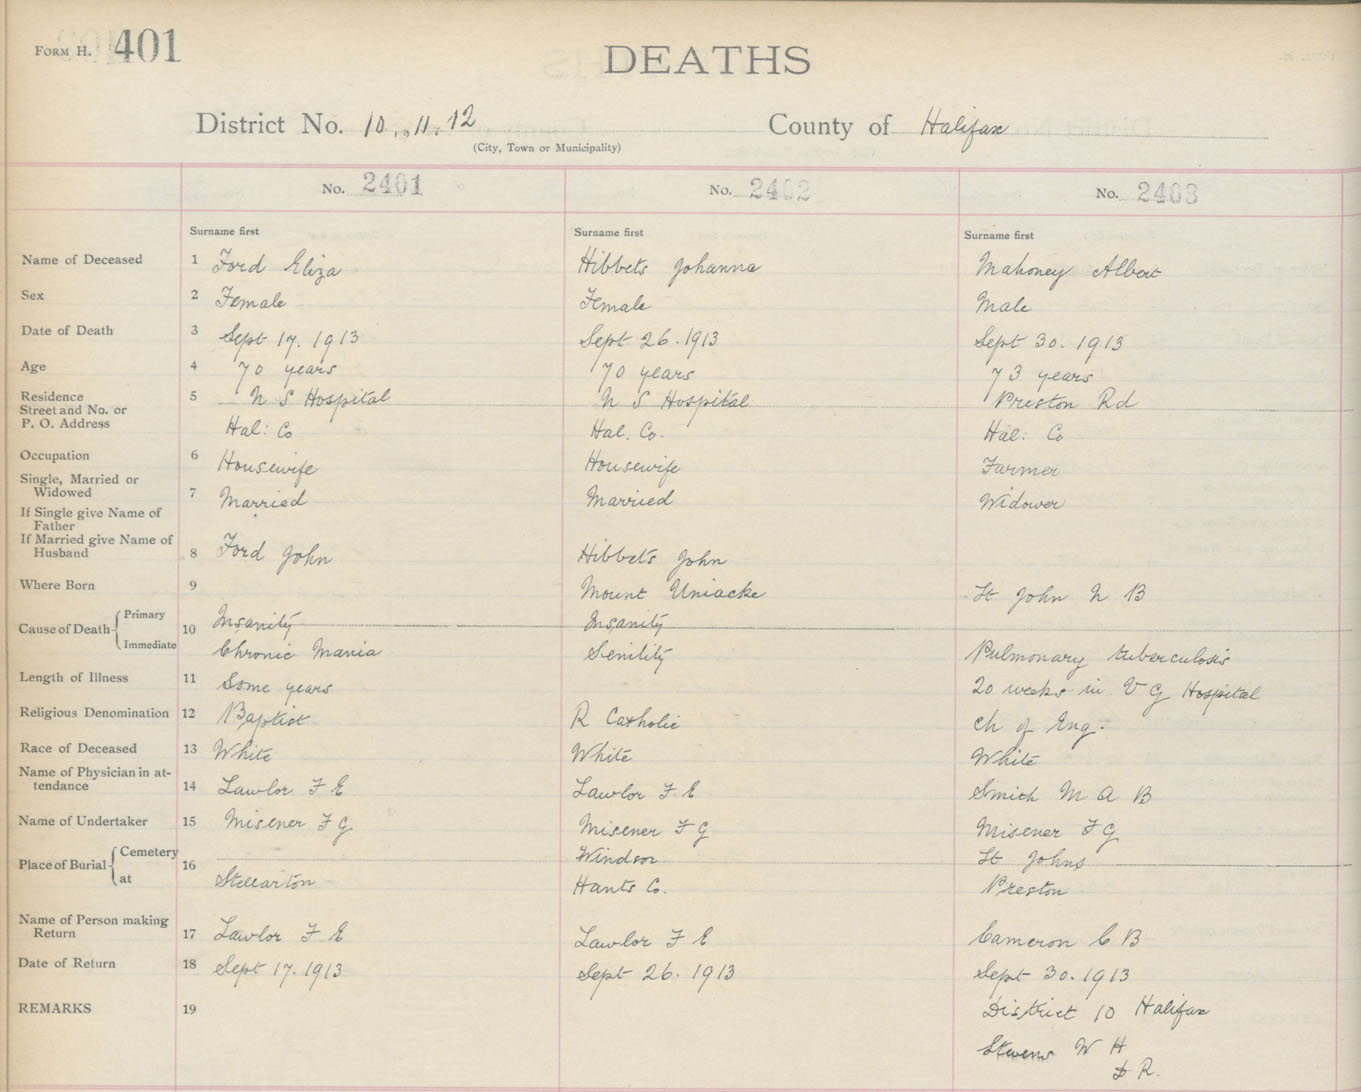 FORM H. 401
DEATHS
District No. 10, 11, 12 County of Halifax
(City, Town or Municipality)
No. 2401 No. 2402 No. 2403
Surname first Surname first Surname first
Name of Deceased 1 Ford Eliza Hibbets Johanna Mahoney Albert
Sex 2 Female Female Male
Date of Death 3 Sept 17. 1913 Sept 26. 1913 Sept 30. 1913
Age 4 70 years 70 years 73 years
Residence 5 N S Hospital N S Hospital Preston Rd
Street and No. or
P. O. Address Hal: Co Hal. Co. Hal: Co
Occupation 6 Housewife Housewife Farmer
Single, Married or
Widowed 7 Married Married Widower
If Single give Name of
Father
If Married give Name of
Husband 8 Ford John Hibbets John
Where Born 9 Mount Uniacke St John N B
Cause of Death Primary 10 Insanity Insanity
Immediate Chronic Mania Senility Pulmonary tuberculosis
Length of Illness 11 Some years 20 weeks in V G Hospital
Religious Denomination 12 Baptist R Catholic Ch of Eng.
Race of Deceased 13 White White White
Name of Physician in at-
tendance 14 Lawlor F E Lawlor F E Smith M A B
Name of Undertaker 15 Misener F G Misener F G Misener F G
Place of Burial Cemetery 16 Windsor St Johns
at Stellarton Hants Co. Preston
Name of Person making
Return 17 Lawlor F E Lawlor F E Cameron C B
Date of Return 18 Sept 17. 1913 Sept 26. 1913 Sept 30. 1913
REMARKS 19 District 10 Halifax
Stevens W H
D R.